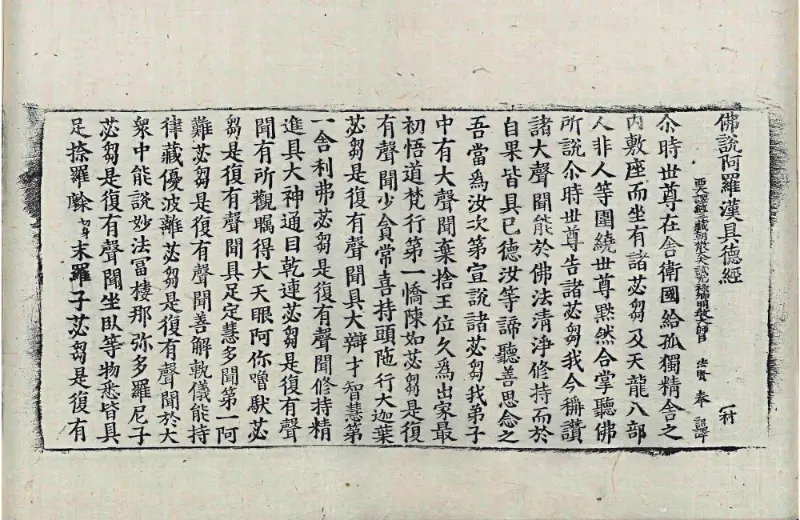 佛說阿羅漢具德經 一 村
西天譯經三藏朝散大夫試光祿卿明教大師臣 法賢 奉 詔譯
尒時世尊在舍衛國給孤獨精舍之
內敷座而坐有諸苾芻及天龍八部
人非人等圍繞世尊默然合掌聽佛
所說尒時世尊告諸苾芻我今稱讚
諸大聲聞能於佛法清淨修持而於
自果皆具已德汝等諦聽善思念之
吾當為汝次第宣說諸苾芻我弟子
中有大聲聞棄捨王位久為出家最
初悟道梵行第一憍陳如苾芻是復
有聲聞少貪常喜持頭陁行大迦葉
苾芻是復有聲聞具大辯才智慧第
一舍利弗苾芻是復有聲聞修持精
進具大神通目乾連苾芻是復有聲
聞有所觀矚得大天眼阿你嚕馱苾
芻是復有聲聞具足定慧多聞第一阿
難苾芻是復有聲聞善解軌儀能持
律藏優波離苾芻是復有聲聞於大
衆中能說妙法冨樓那弥多羅尼子
苾芻是復有聲聞坐臥等物悉皆具
足捺羅末羅子苾芻是復有